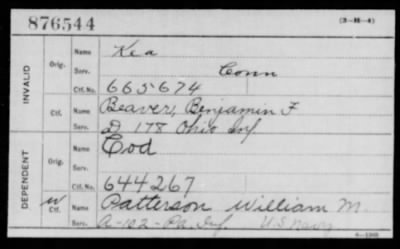 876544
(3-H-4)
INVALID
Orig.
Name Kea
Serv. Conn
Ctf. No. 665674
Ctf.
Name Beaver, Benjamin F
Serv. D 178 Ohio Inf
DEPENDENT
Orig.
Name Cod
Serv.
Ctf. No. 644267
W Ctf.
Name Patterson William M.
Serv. A-102-Pa. Inf. U.S. Navy